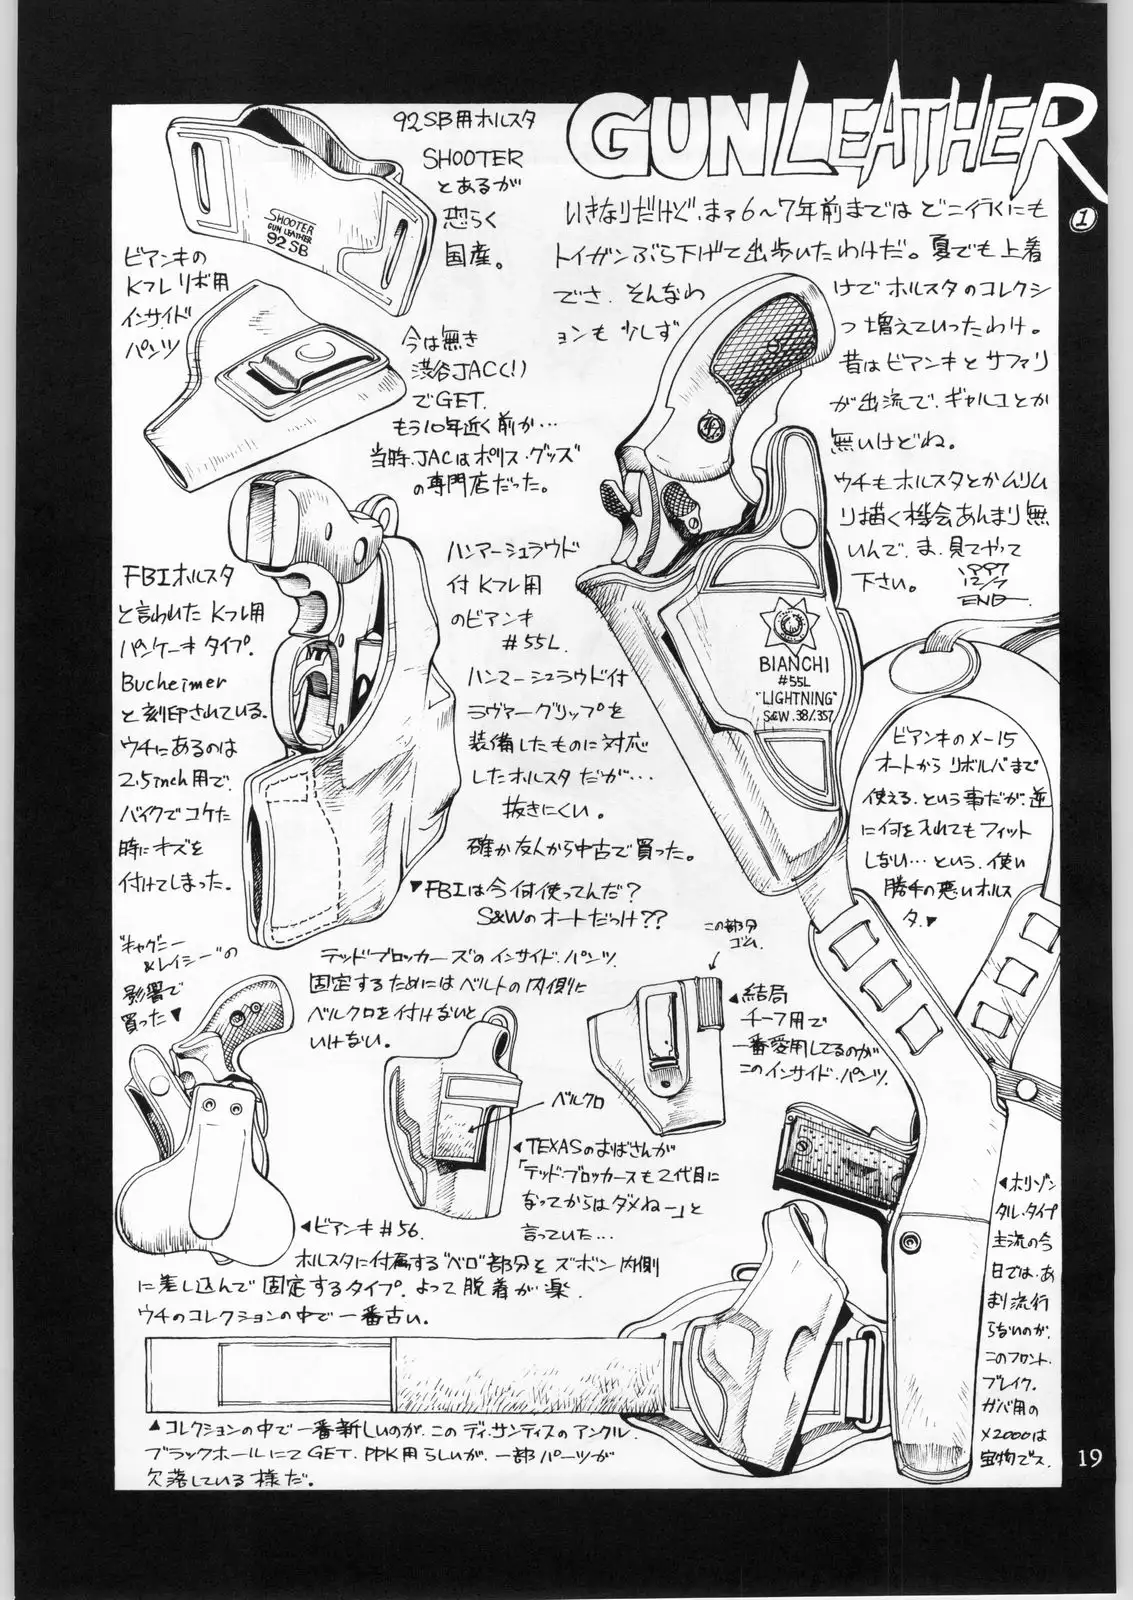 GUNLEATHER
①
いきなりだけど、まァ6〜7年前までは どこ行くにも
トイガンぶら下げて出歩いたわけだ。夏でも上着
でさ、そんなわけでホルスタのコレクシ
ョンも少しずつ増えていったわけ。
昔はビアンキとサファリ
が出流で、ギャルコとか
無いけどね。
ウチもホルスタとかムリム
リ描く機会あんまり無
いんで、ま、見てやって
下さい。
1997
12/7
END
92SB用ホルスタ
SHOOTER
とあるが
恐らく
国産。
SHOOTER
GUN LEATHER
92SB
ビアンキの
Kフレ リボ用
インサイド
パンツ
今は無き
渋谷JAC(!)
でGET.
もう10年近く前か…
当時、JACはポリス・グッズ
の専門店だった。
FBIホルスタ
と言われたKフレ用
パンケーキタイプ.
Bucheimer
と刻印されている.
ウチにあるのは
2.5inch用で、
バイクでコケた
時にキズを
付けてしまった.
ハンマーシュラウド
付Kフレ用
のビアンキ
#55L.
ハンマーシュラウド付
ラヴァーグリップを
装備したものに対応
したホルスタだが…
抜きにくい。
確か友人から中古で買った。
▼FBIは今何使ってんだ？
S&Wのオートだっけ??
BIANCHI
#55L
"LIGHTNING"
S&W .38/.357
ビアンキのX-15
オートからリボルバまで
使える、という事だが、逆
に何を入れてもフィット
しない…という、使い
勝手の悪いホルス
タ.▼
"キャグニー
&レイシー"の
影響で
買った▼
テッドブロッカーズのインサイド・パンツ.
固定するためにはベルトの内側に
ベルクロを付けないと
いけない。
ベルクロ
この部分
ゴム.
◀結局
チーフ用で
一番愛用してるのが
このインサイド・パンツ.
◀TEXASのおばさんが
「テッド・ブロッカースも2代目に
なってからはダメねー」と
言っていた…
◀ビアンキ#56.
ホルスタに付属する"ベロ"部分をズボン内側
に差し込んで固定するタイプ.よって脱着が楽.
ウチのコレクションの中で一番古い.
◀ホリゾン
タル・タイプ
主流の今
日では、あ
まり流行
らないのが、
このフロント.
ブレイク.
ガバ用の
X2000は
宝物でス.
▲コレクションの中で一番新しいのが、このディ・サンティスのアンクル.
ブラックホールにてGET. PPK用らしいが、一部パーツが
欠落している様だ。
19